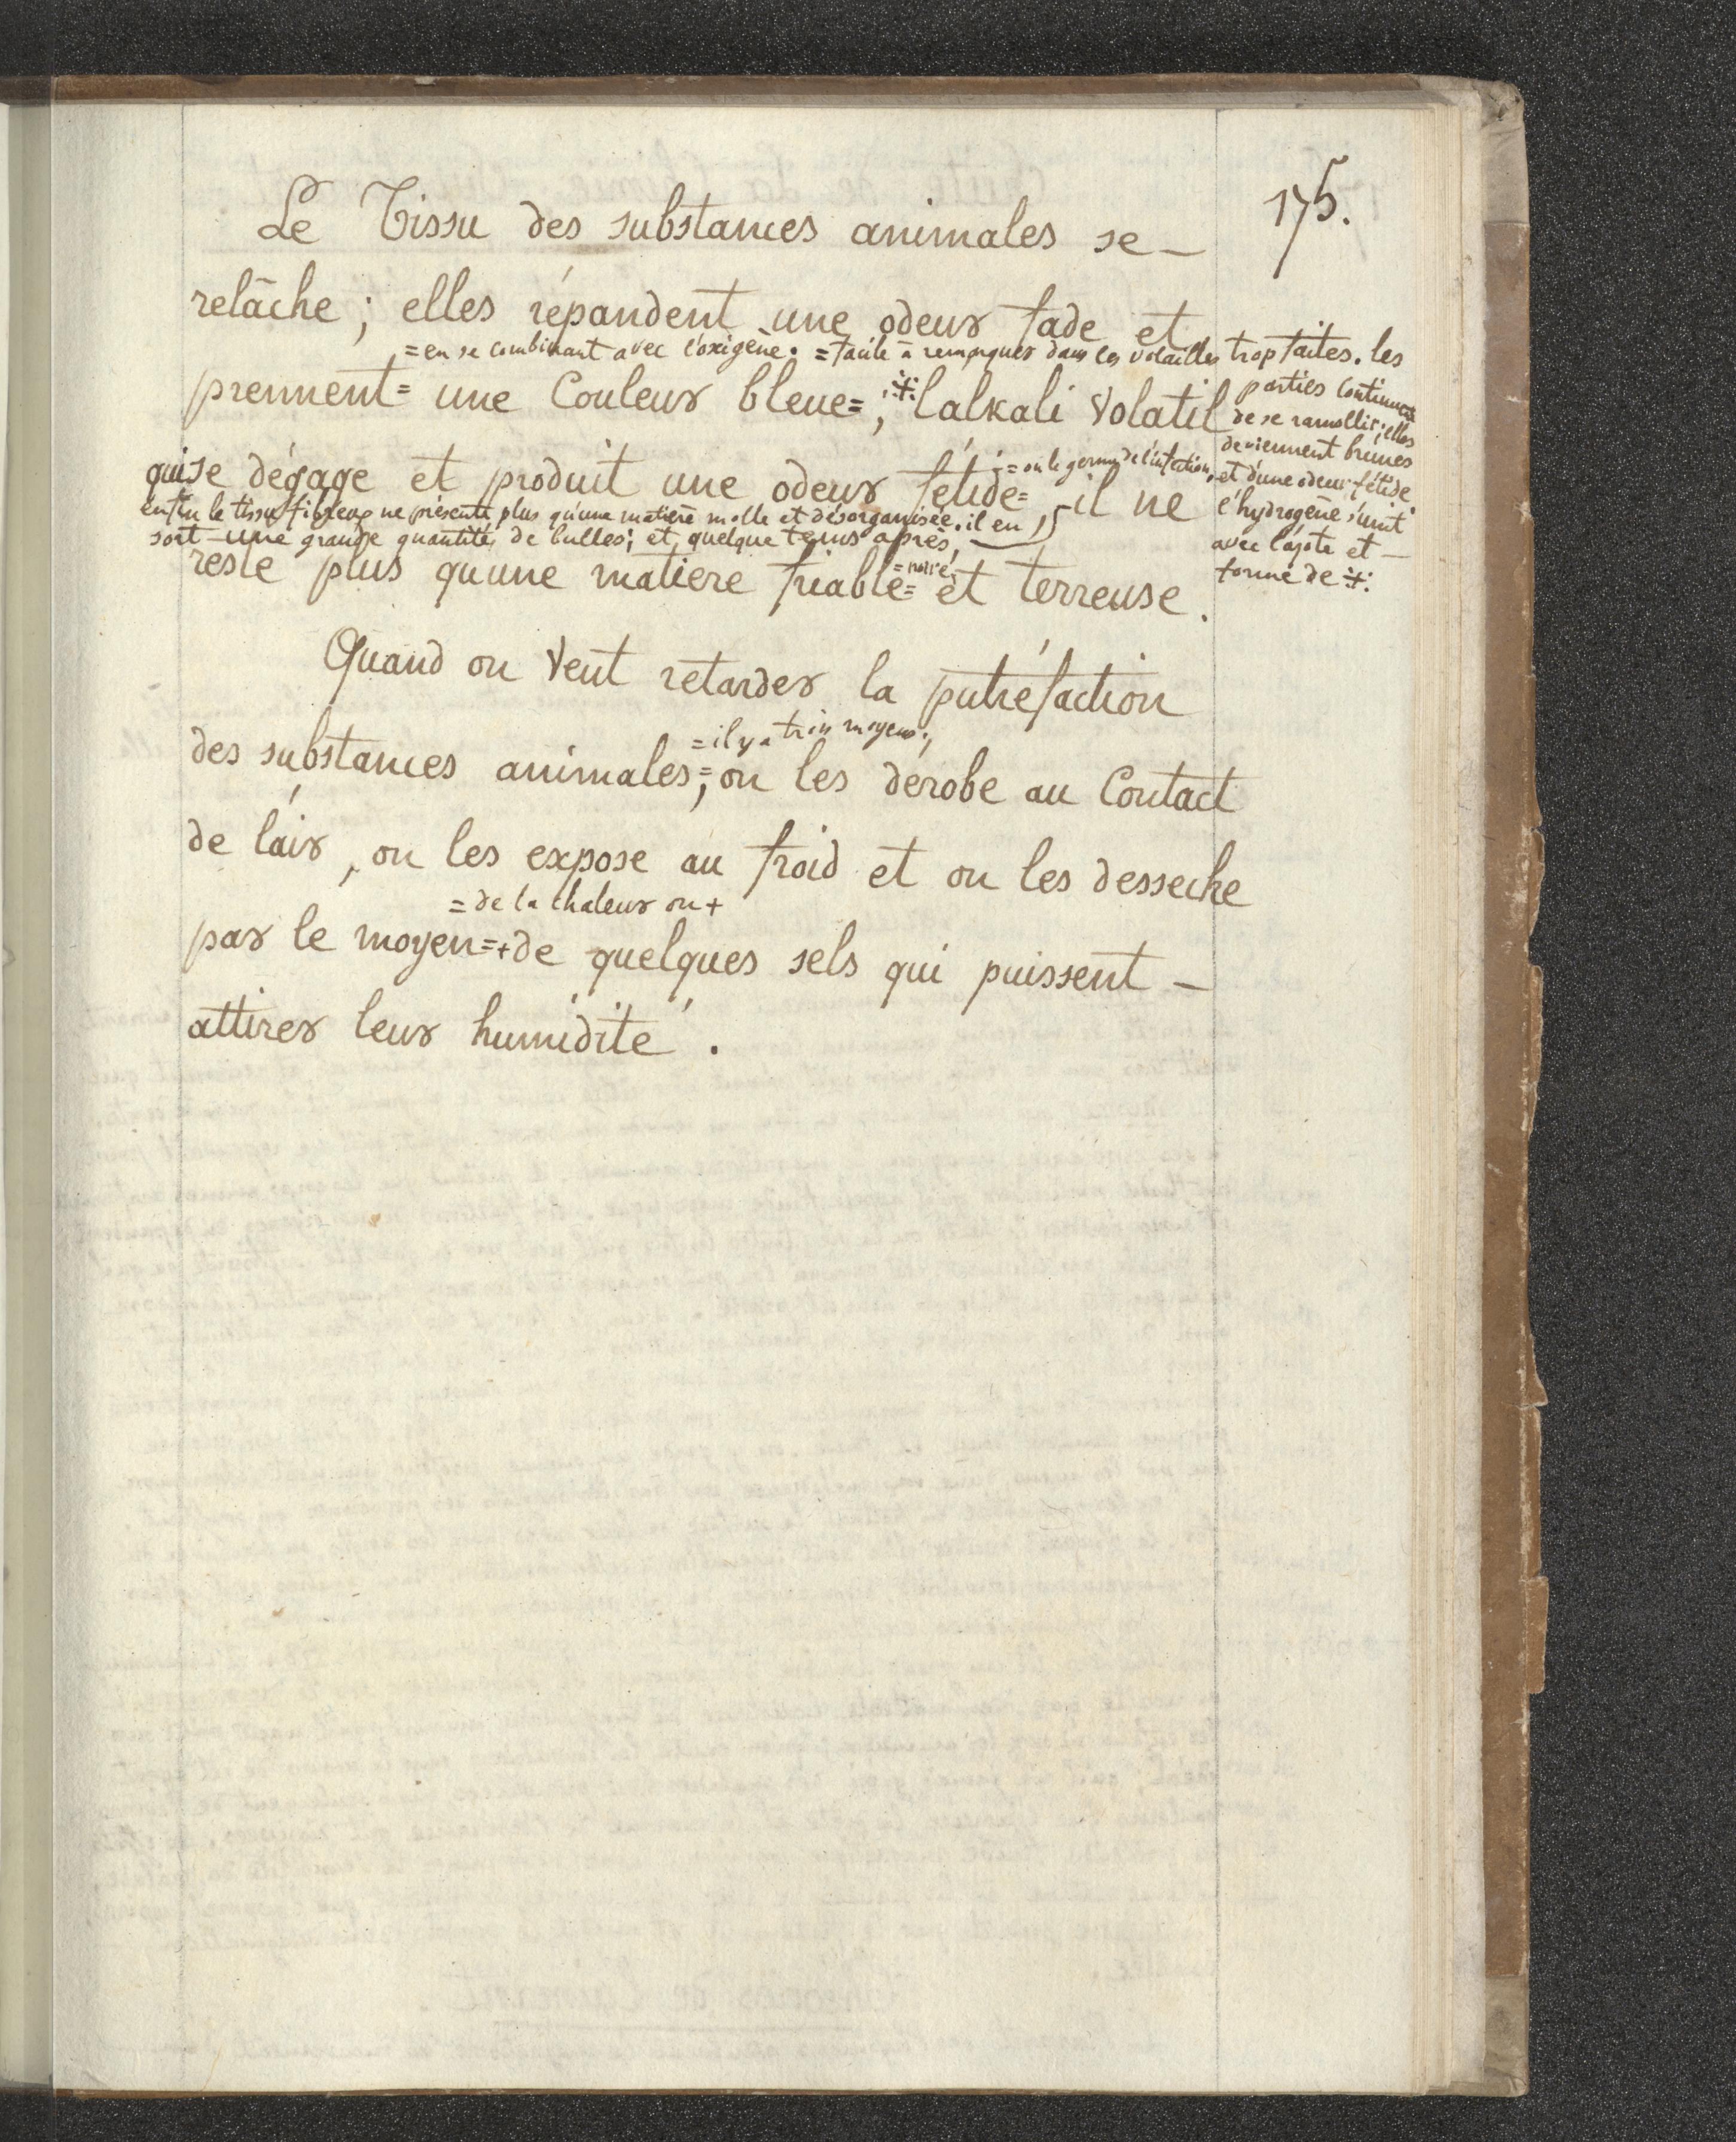 175.
Le Tissu des substances animales se —
relâche ; elles répandent une odeur fade et
= en se combinant avec l'oxigène. = facile à remarquer dans les volailles trop faites. les
prennent = une Couleur bleue = ; ⁜ lalkali volatil
parties continuent
de se ramollir ; elles
deviennent brunes
et d'une odeur fétide
l'hydrogène s'unit
avec l'azote et —
forme de ⁜
= ou le germe de l'infection,
qui se dégage et produit une odeur fétide = , il ne
enfin le tissu fibreux ne présente plus qu'une matière molle et désorganisée. il en
sort une grande quantité de bulles ; et, quelque tems après,
= noire,
reste plus quune matiere friable = et terreuse .
Quand on veut retarder la putréfaction
= il y a trois moyens ;
des substances animales = ; on les dérobe au Contact
de láir , on les expose au froid et on les desseche
= de la chaleur ou +
par le moyen = + de quelques sels qui puissent —
attirer leur humidité .